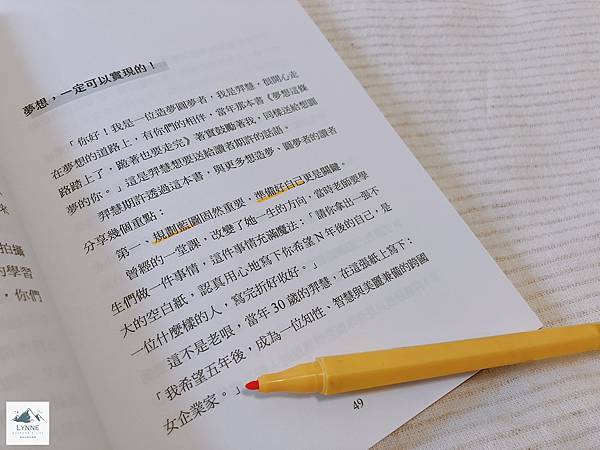 夢想，一定可以實現的！
「你好！我是一位造夢圓夢者，我是羿慧，很開心走
在夢想的道路上，有你們的相伴，當年那本書《夢想這條
路踏上了，跪著也要走完》著實鼓勵著我，同樣送給想圓
夢的你。」這是羿慧想要送給讀者期許的話語。
羿慧期許透過這本書，與更多想造夢、圓夢者的讀者
分享幾個重點：
第一、規劃藍圖固然重要，準備好自己更是關鍵。
曾經的一堂課，改變了她一生的方向，當時老師要學
生們做一件事情，這件事情充滿魔法：「請你拿出一張不
大的空白紙，認真用心地寫下你希望 N 年後的自己，是
一位什麼樣的人，寫完折好收好。」
這不是老哏，當年 30 歲的羿慧，在這張紙上寫下：
「我希望五年後，成為一位知性、智慧與美麗兼備的跨國
女企業家。」
49
拍攝
的學習
，你們
LYNNE